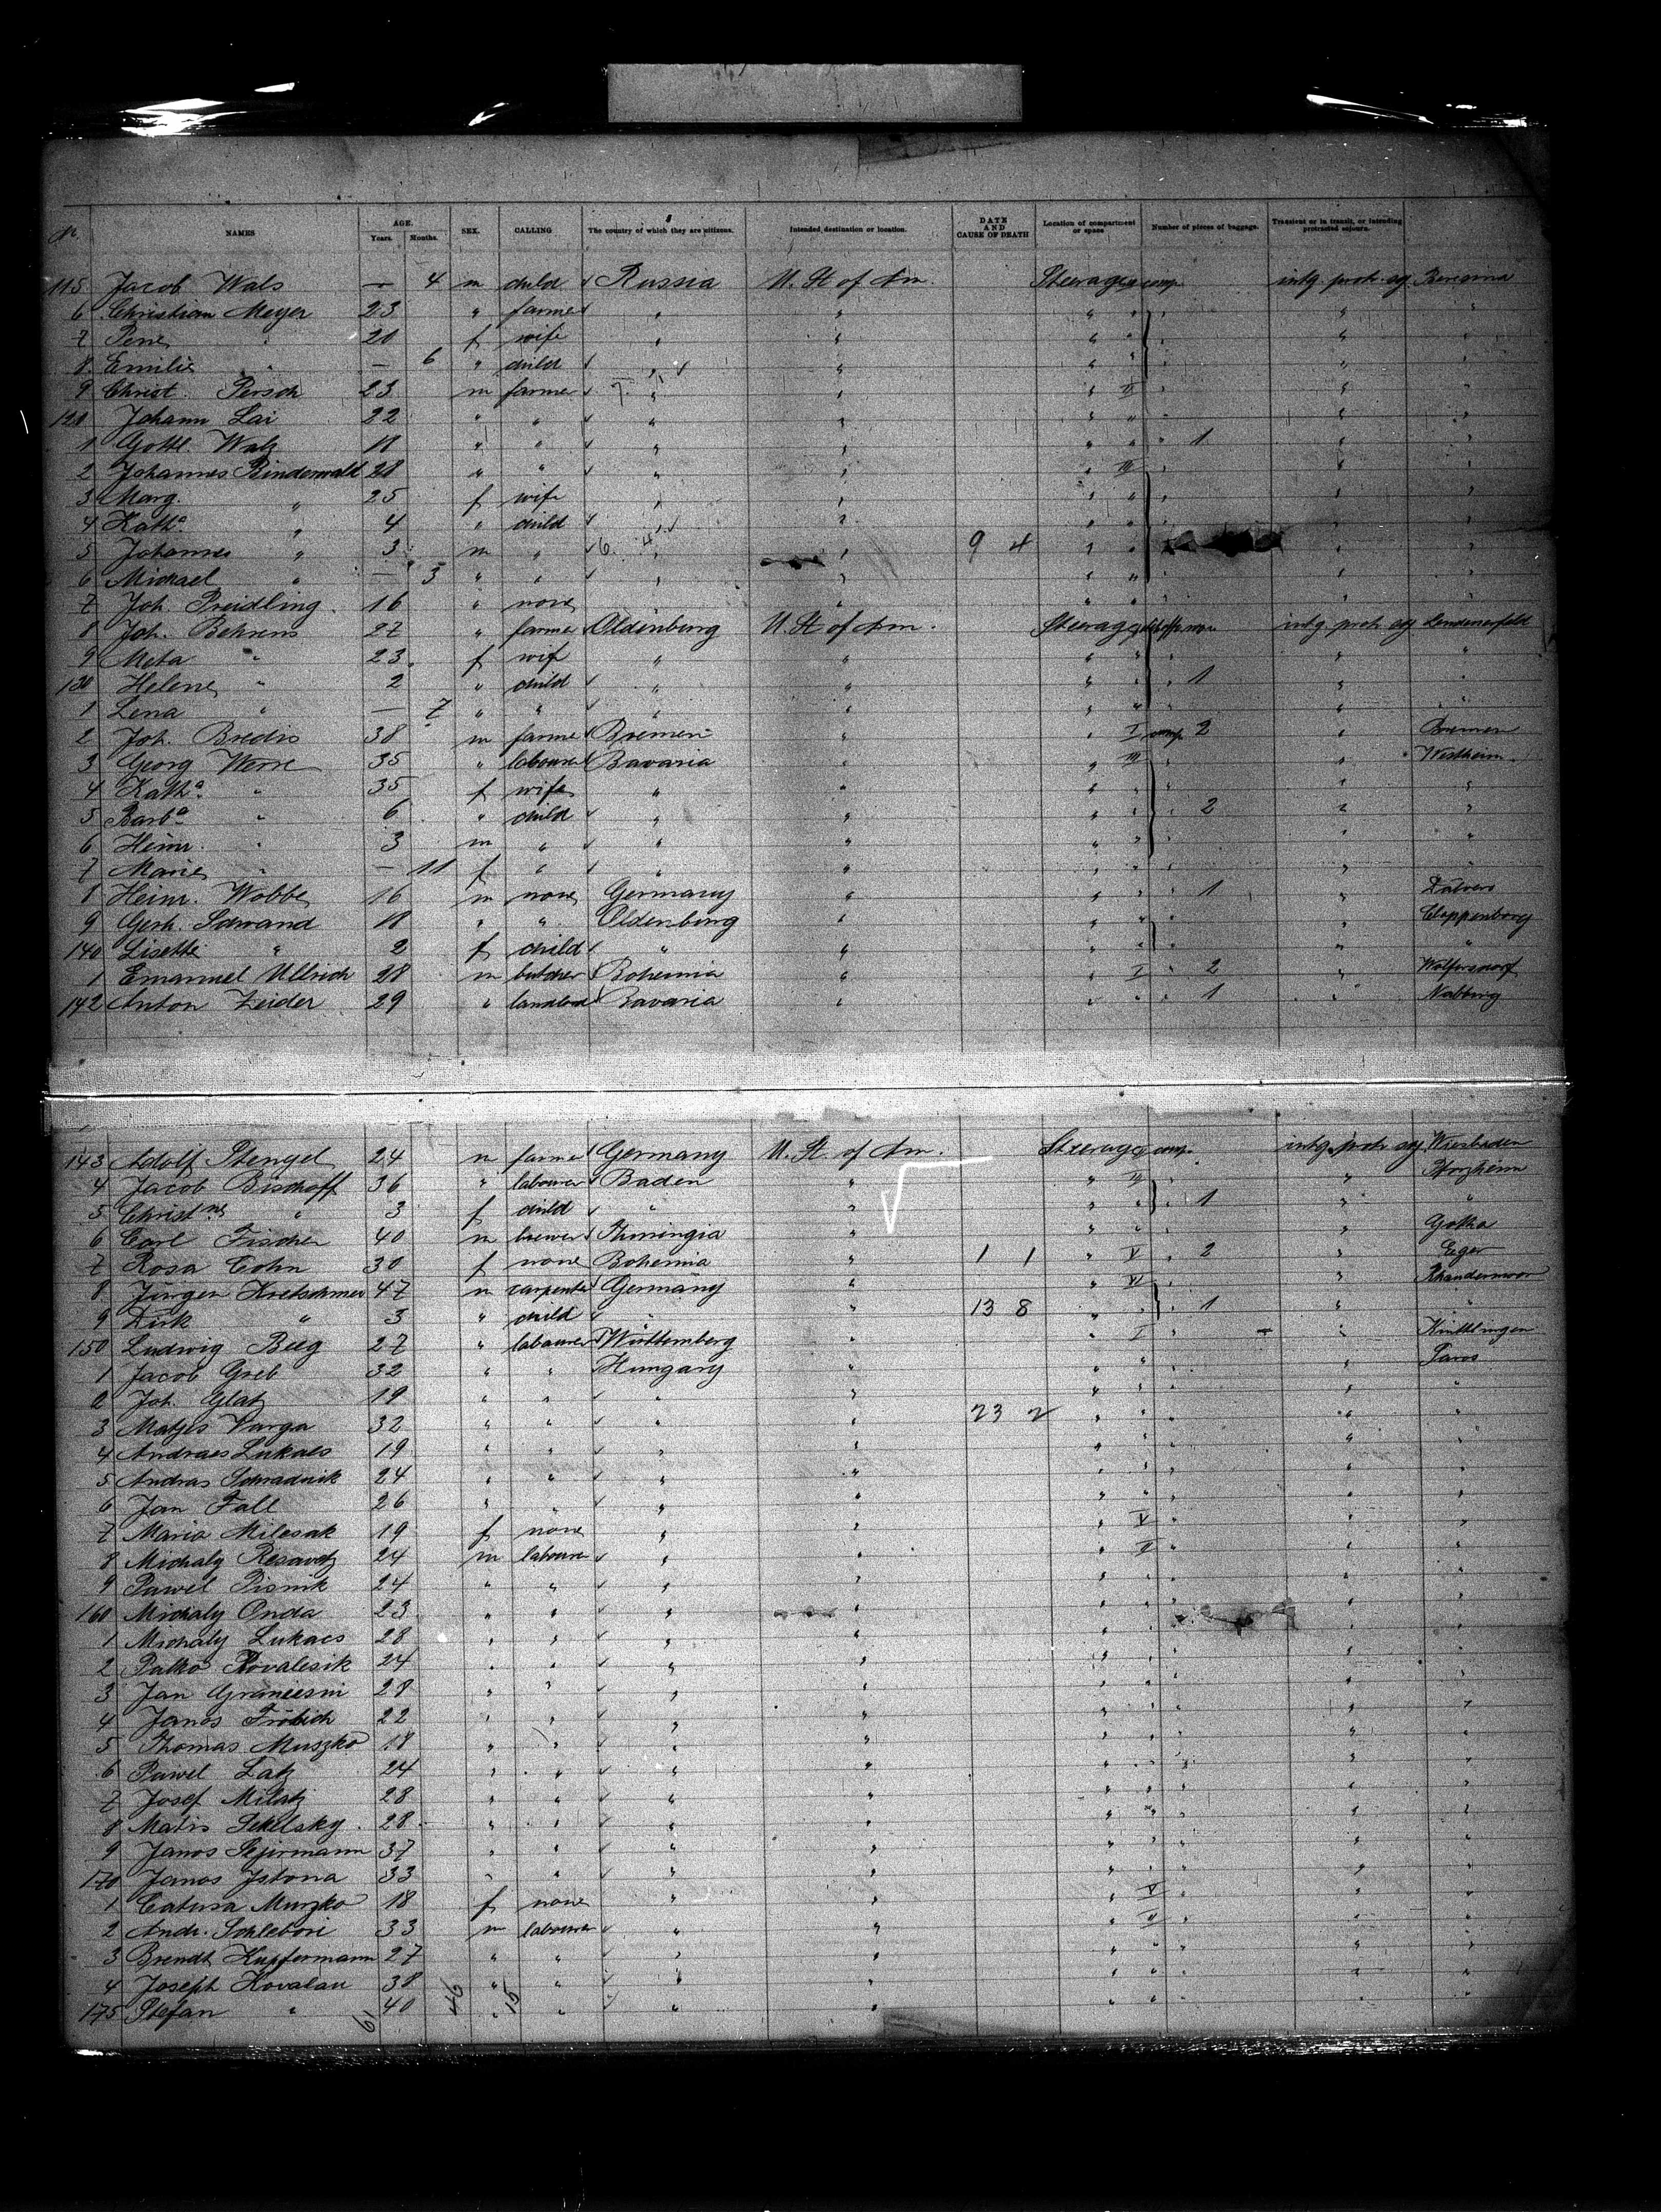 No. NAMES AGE. Years. Months. SEX. CALLING The country of which they are citizens. Intended destination or location. DATE AND CAUSE OF DEATH Location of compartment or space Number of pieces of baggage. Transient or in transit, or intending protracted sojourn.
115 Jacob Wals — 4 m child Russia U. St of Am. Steerage comp. intg. protr. soj. Beresina
6 Christian Meyer 23 " farmer " " " " "
7 " 20 f wife " " " " "
8 Emilie " — 6 " child " " " " "
9 Christ. Persch 23 m farmer " " " II " " "
120 Johann Lai 22 " " " " " " " "
1 Gottl. Walz 18 " " " " " " 1 " "
2 Johannes Rinderwald 28 " " " " " III " " "
3 Marg. " 25 f wife " " " " " "
4 Katha " 4 " child " " " " " "
5 Johannes " 3 m " 6. 4 " " 9 4 " " " "
6 Michael " — 3 " " " " " " " "
7 Joh. Preidling 16 " none " " " " "
8 Joh. Behrens 27 " farmer Oldenburg U. St of Am. Steerage intg. protr. soj.
9 Meta " 23 f wife " " " " " "
130 Helene " 2 " child " " " " 1 " "
1 Lena " — 7 " " " " " " " "
2 Joh. Bredis 38 m farmer Bremen " " I comp 2 " Bremen
3 Georg Werre 35 " labourer Bavaria " " III " Westheim
4 Katha " 35 f wife " " " " " "
5 Barba " 6 " child " " " " 2 " "
6 Heinr. " 3 m " " " " " " "
7 Marie " — 11 f " " " " " "
8 Heinr. Wobbe 16 m none Germany " " " 1 "
9 Gerh. Schwand 18 " " Oldenburg " " " " " Cloppenburg
140 Lisette " 2 f child " " " " " " "
1 Emanuel Ullrich 28 m butcher Bohemia " " I " 2 " Wolfersdorf
142 Anton Zeider 29 " landlord Bavaria " " " " 1 " Nabburg
143 Adolf Stengel 24 m farmer Germany U. St. of Am. Steerage comp. intg. protr. soj. Wiesbaden
4 Jacob Bischoff 36 " labourer Baden " " III " " Pforzheim
5 Christne " 3 f child " " " " " 1 " "
6 Carl Fischer 40 m brewer Thuringia " " " " " Gotha
7 Rosa Cohn 30 f none Bohemia " 1 1 " V " 2 " Eger
8 Jürgen Kretschmer 47 m carpenter Germany " " VI " Rhaudermoor
9 Dirk " 3 " child " " 13 8 " " " 1 " "
150 Ludwig Beeg 27 " labourer Württemberg " " I " - " Knittlingen
1 Jacob Greb 32 " " Hungary " " " " "
2 Joh. Glatz 19 " " " " " " " " "
3 Matyis Varga 32 " " " " 23 2 " " " " "
4 Andraes Lukacs 19 " " " " " " " " "
5 Andras Schradnik 24 " " " " " " " " "
6 Jan Fall 26 " " " " " " " " "
7 Maria Milesak 19 f none " " " V " " "
8 Michaly Resavatz 24 m labourer " " " II " " "
9 Pawel Pisnik 24 " " " " " " " " "
160 Michaly Onda 23 " " " " " " " " "
1 Michaly Lukacs 28 " " " " " " " " "
2 Palko Kovalesik 24 " " " " " " " " "
3 Jan 28 " " " " " " " " "
4 Janos Frölich 22 " " " " " " " " "
5 Thomas Muszko 18 " " " " " " " " "
6 Pawel Latz 24 " " " " " " " " "
7 Josef Milatz 28 " " " " " " " " "
8 Matis Sekelsky 28 " " " " " " " " "
9 Janos 37 " " " " " " " " "
170 Janos Istona 33 " " " " " " " " "
1 Catusa Muszko 18 f none " " " V " " "
2 Andr. Schlebori 33 m labourer " " " II " " "
3 Brendt Kupfermann 27 " " " " " " " " "
4 Joseph Kovalau 38 " " " " " " " " "
175 Stefan " 40 " " " " " " " " "
61 46 15